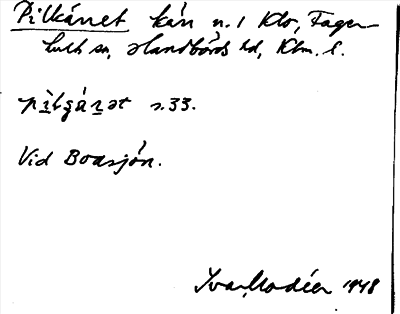 Pilkärret kärr n. 1 Klo, Fager-
hult sn, Handbörds hd, Klm. l.
pìlɡǽr̲ət s. 33.
Vid Boasjön.
Ivar Modéer 1948